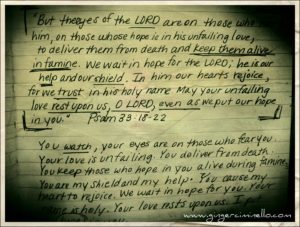 "But the eyes of the LORD are on those who
him, on those whose hope is in his unfailing love,
to deliver them from death and keep them alive
in famine. We wait in hope for the LORD; he is our
help and our shield. In him our hearts rejoice,
for we trust in his holy name. May your unfailing
love rest upon us, O LORD, even as we put our hope
in you." Psalm 33:18-22
You watch, your eyes are on those who fear you.
Your love is unfailing. You deliver from death.
You keep those who hope in you alive during famine.
You are my shield and my help. You cause my
heart to rejoice. We wait in hope for you. Your
name is holy. Your love rests upon us. I
www.gingerciminello.com